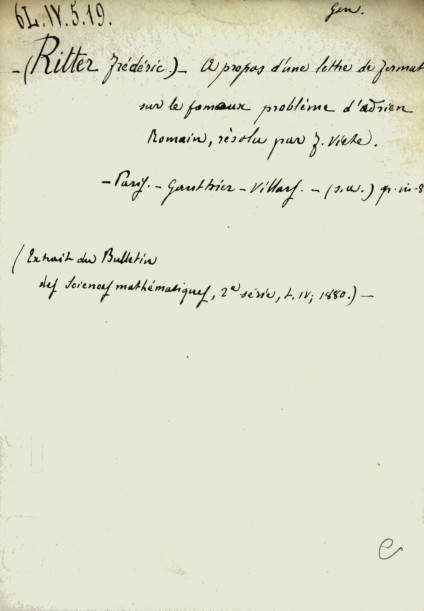 6L.IV.5.19.
Gen.
-(Ritter Frédéric.)- A propos d'une lettre de Fermat
sur le fameux problème d'Adrien
Romain, résolu par F. Viète.
-Paris.- Gauthier-Villars.- (s.d.) gr.in-8
(Extrait du Bulletin
des Sciences mathématiques, 2e série, t. IV; 1880.)-
e